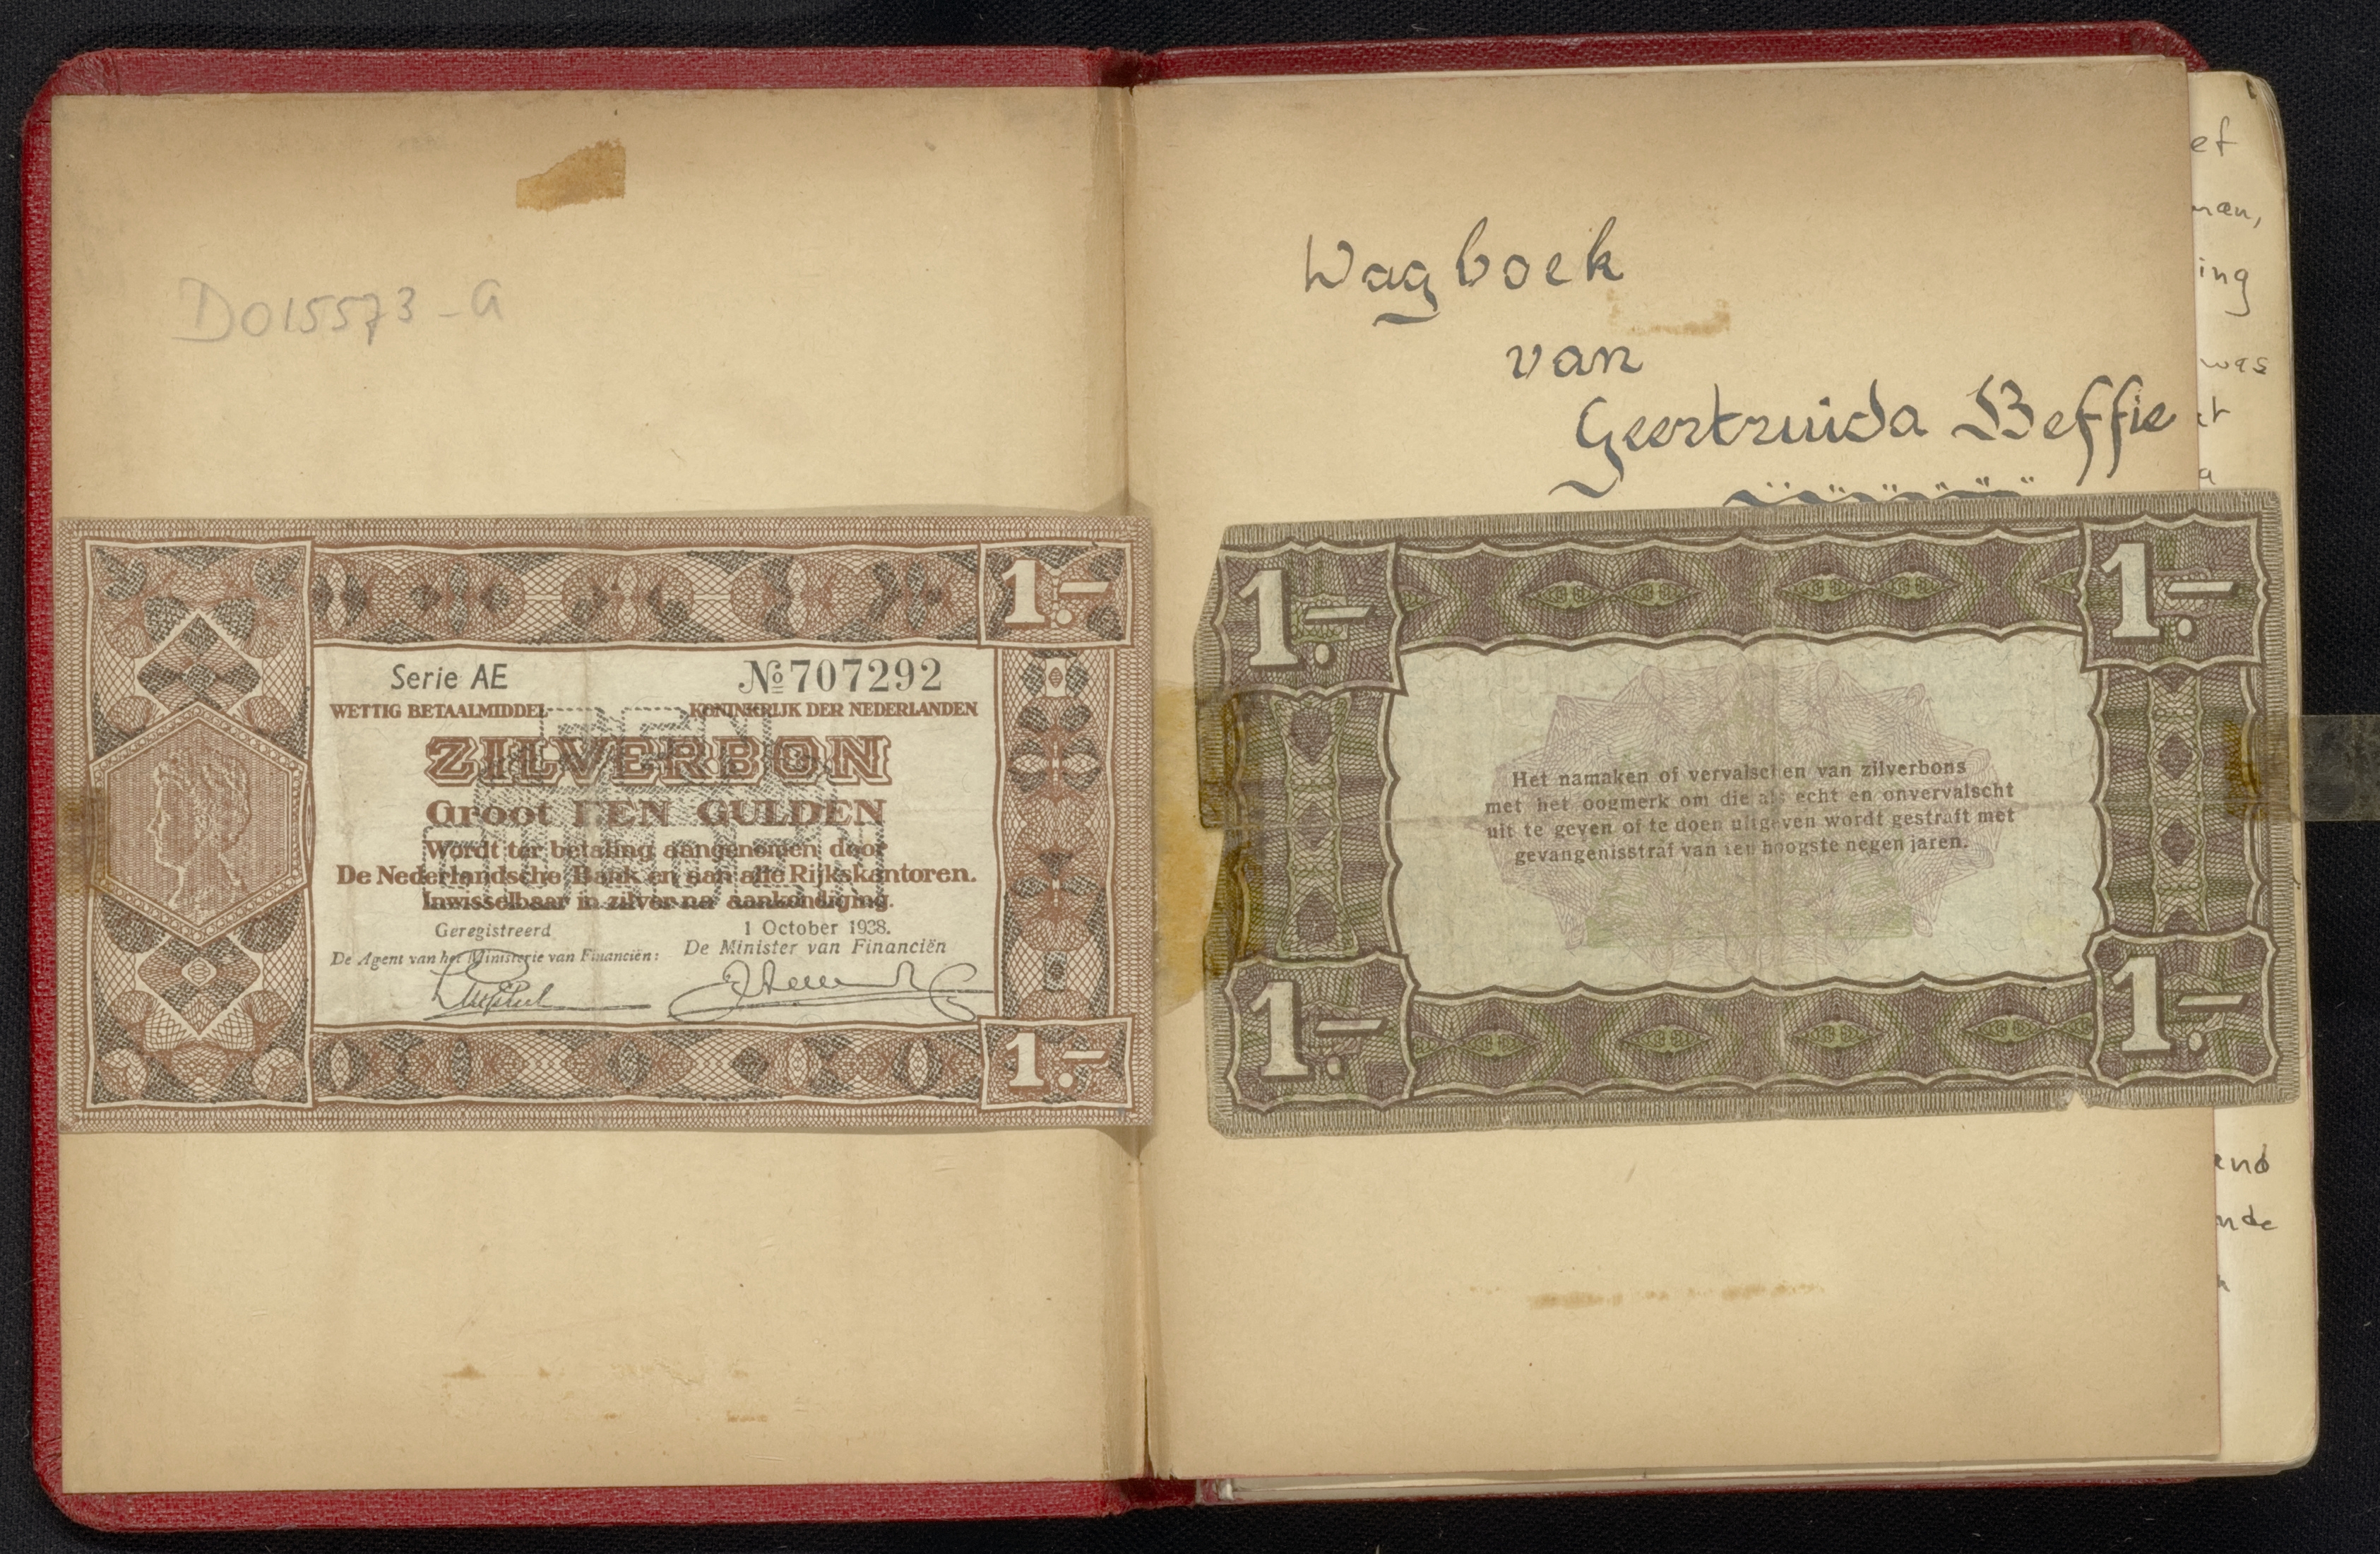 D015573-a
1.-
Serie AE
№ 707292
WETTIG BETAALMIDDEL
KONINKRIJK DER NEDERLANDEN
ZILVERBON
Groot EEN GULDEN
Wordt ter betaling aangenomen door
De Nederlandsche Bank en aan alle Rijkskantoren.
Inwisselbaar in zilver na aankondiging.
Geregistreerd
1 October 1938.
De Agent van het Ministerie van Financiën:
De Minister van Financiën
1.-
Wagboek
van
Geertruida Beffie
1.-
1.-
Het namaken of vervalschen van zilverbons
met het oogmerk om die als echt en onvervalscht
uit te geven of te doen uitgeven wordt gestraft met
gevangenisstraf van ten hoogste negen jaren.
1.-
1.-
ing
was